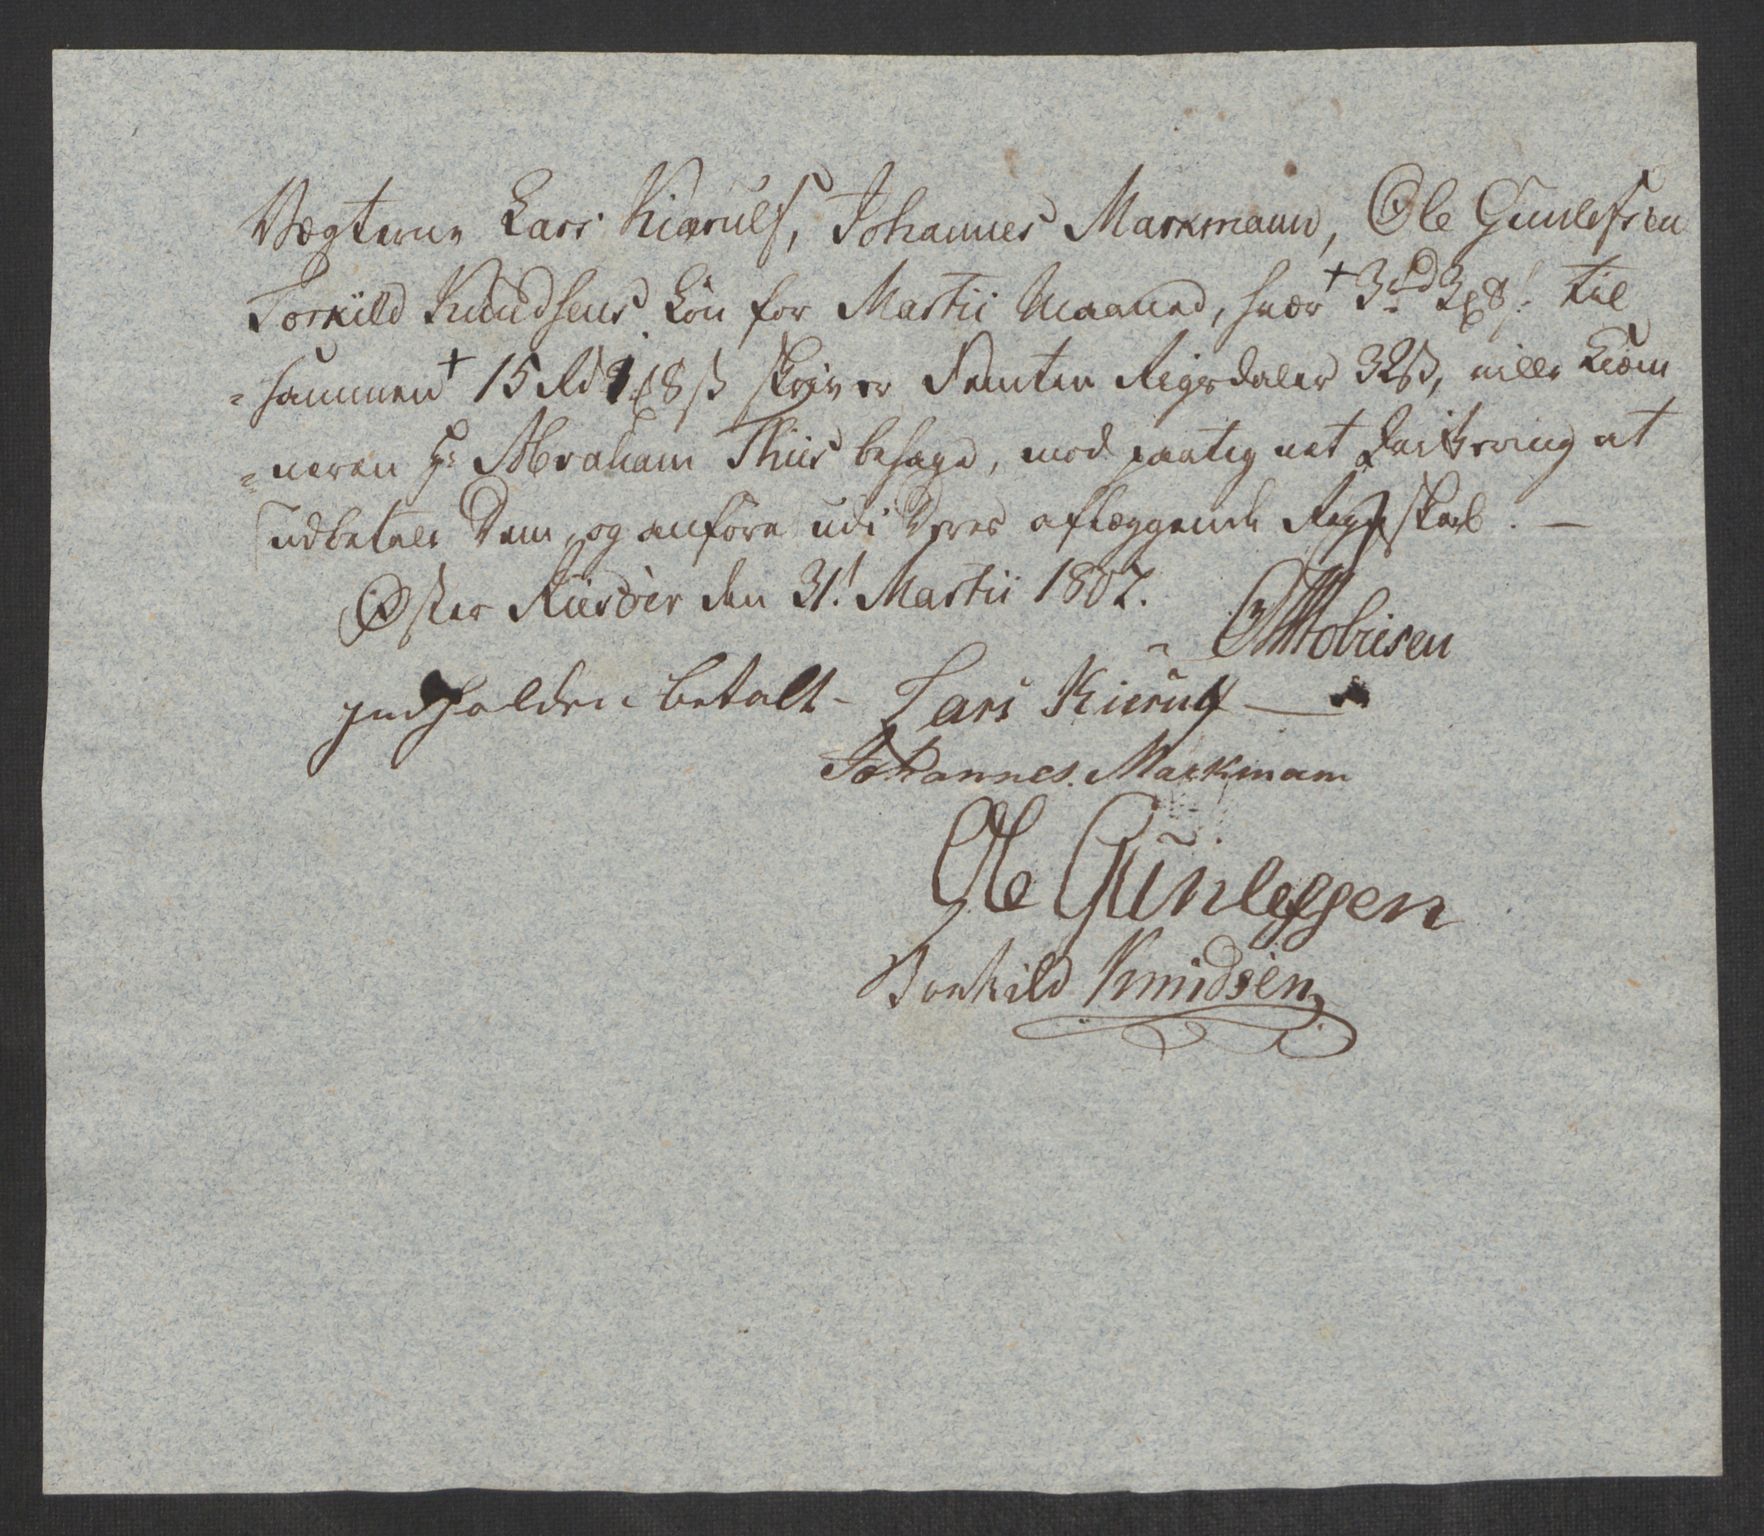 Vægterne Lars Kierulf, Johannes Markmann, Ole Gunlefsen
Torkild Knudsens Lön for Martii Maaned, hver + 3rd 3 # 8 s. til
=sammen + 15 Rd 2 # 8 ß skriver Femten Rigsdaler 32 ß, ville Kiem
=neren Hr Abraham Thiis behage, mod paateignet Qvittering at
udbetale Dem, og anföre udi Deres aflæggende Regnskab. —
Øster Riisöer den 31. Martii 1807.
Mobiesen
Indholdene betalt - Lars Kierulf —
Johannes Markmann
Ole Gunlefsen
Torkild Knudsen